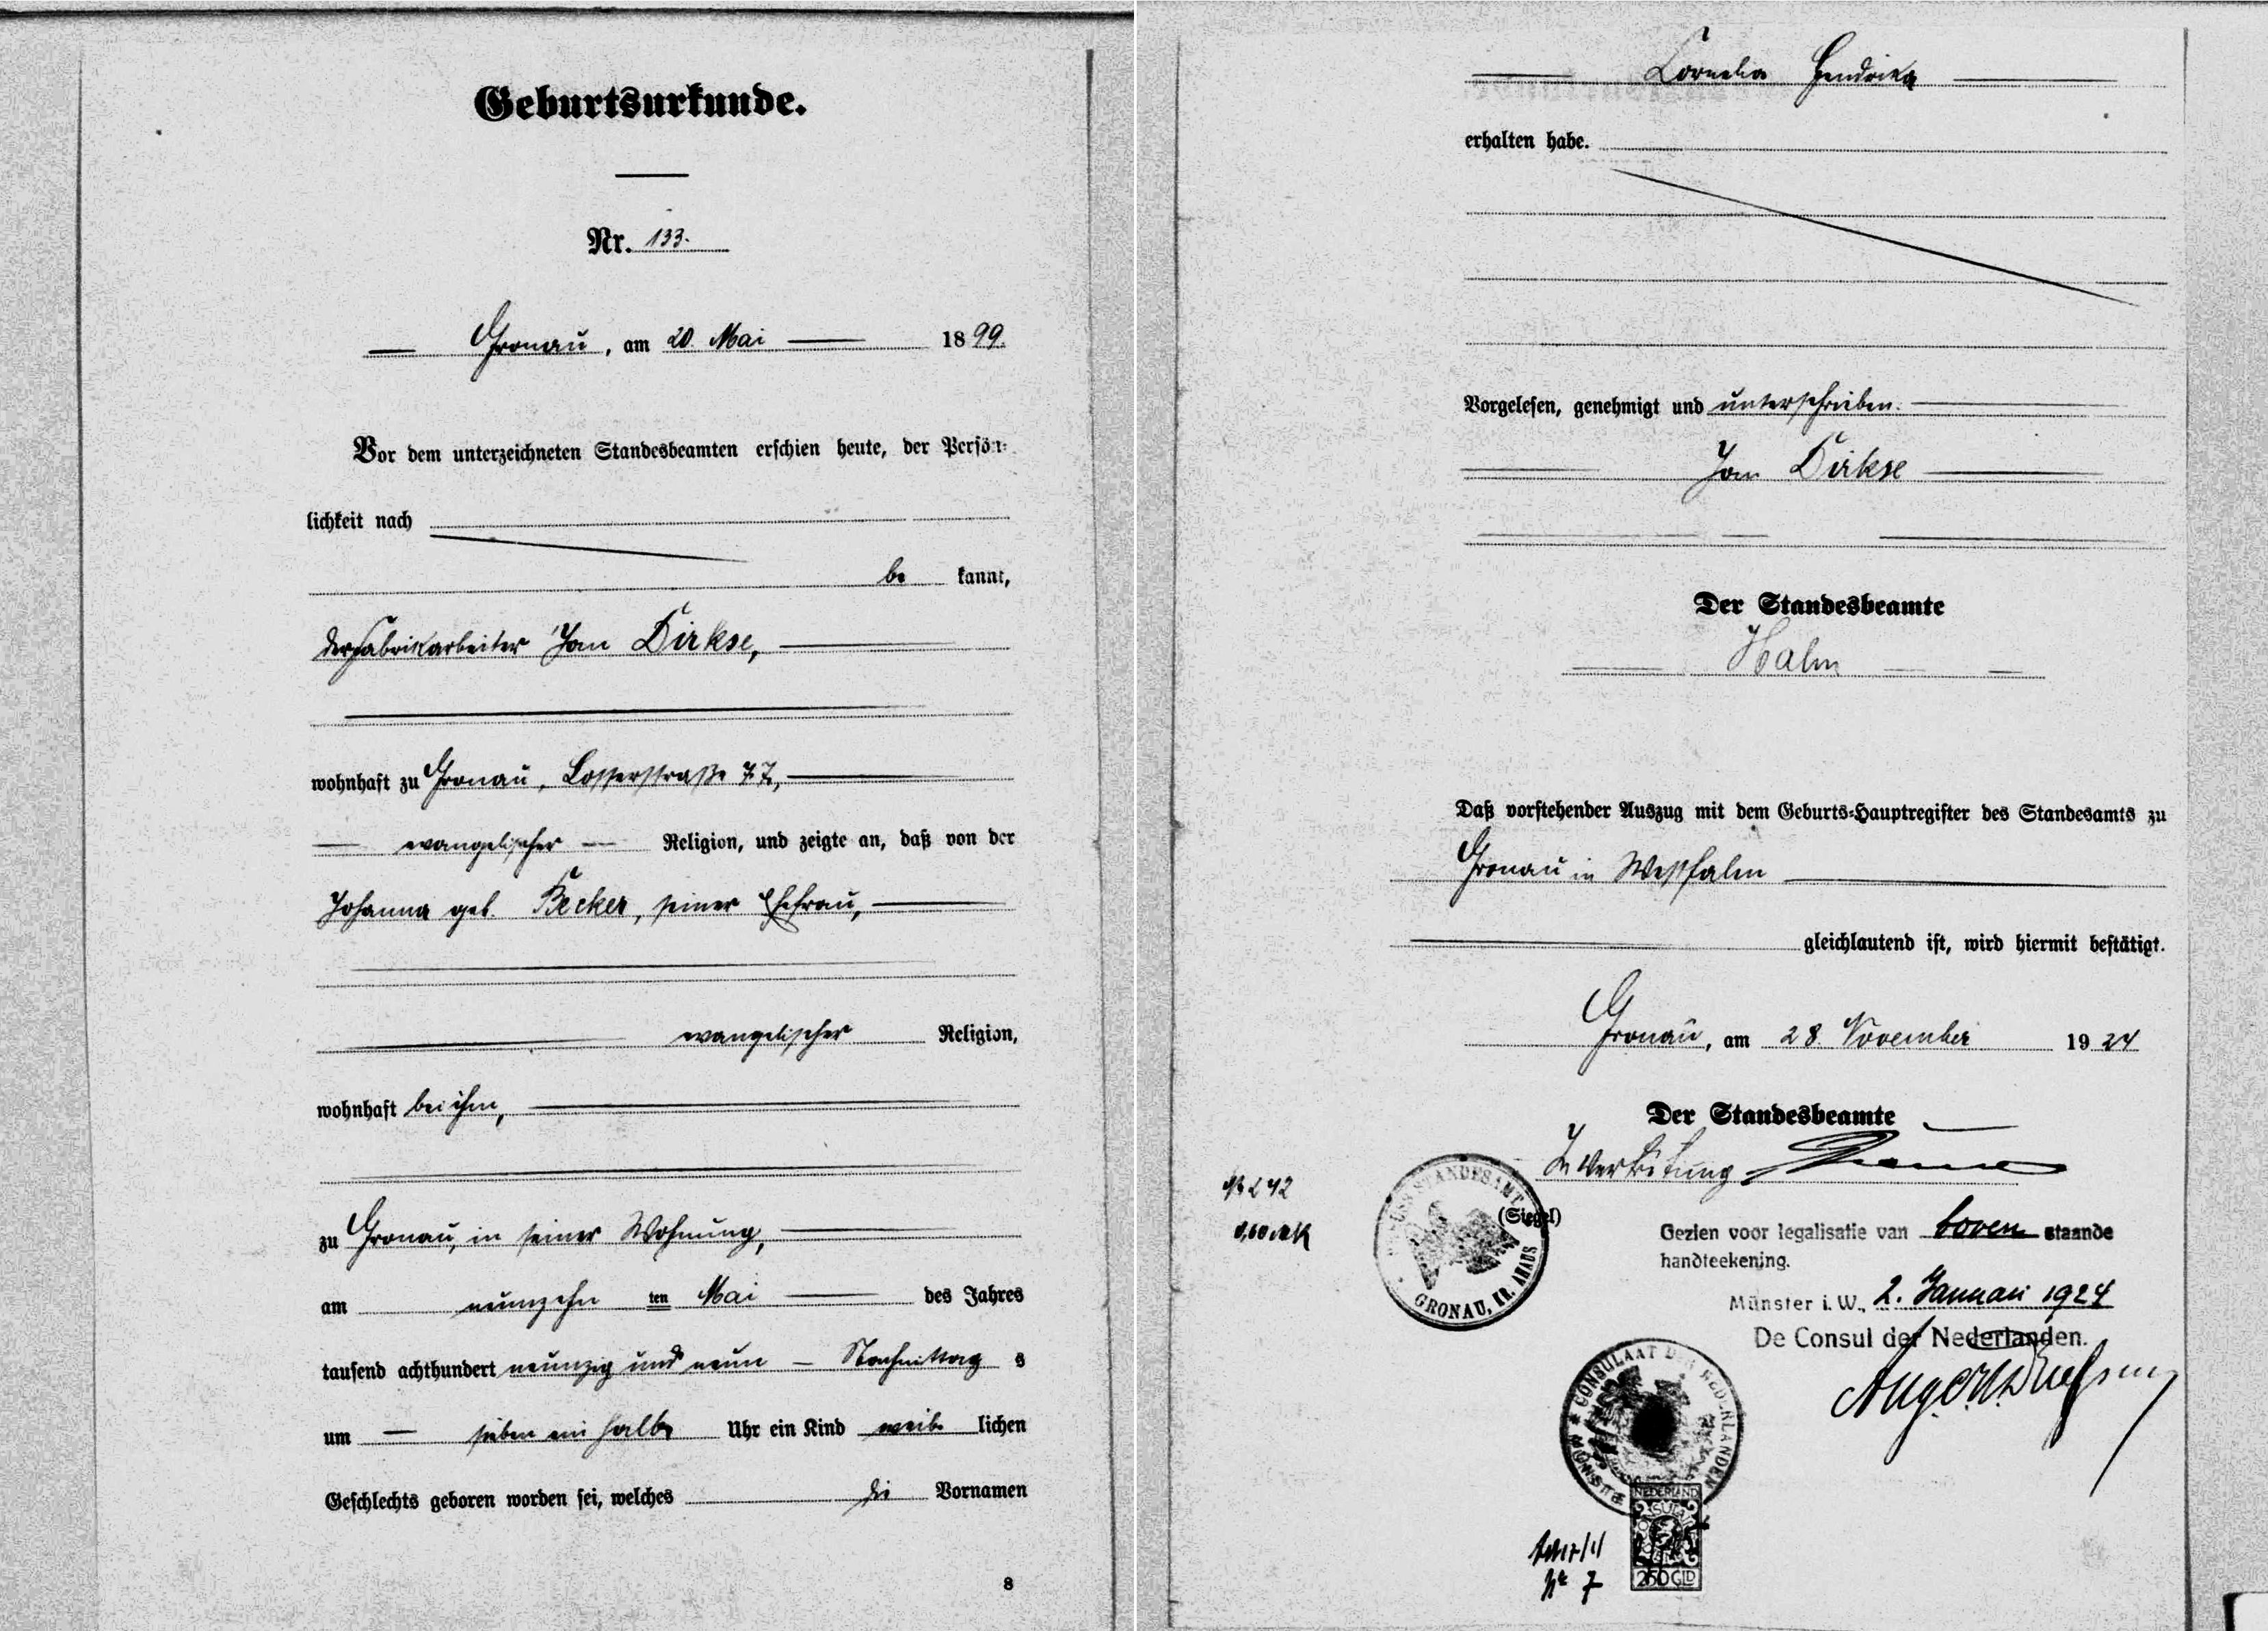 Geburtsurkunde.
Nr. 133.
Gronau, am 20. Mai 1899.
Vor dem unterzeichneten Standesbeamten erschien heute, der Persön-
lichkeit nach
be kannt,
der Fabrikarbeiter Jan Dirkse,
wohnhaft zu Gronau, Losserstraße 77,
evangelischer Religion, und zeigte an, daß von der
Johanna geb. Becker, seiner Ehefrau,
evangelischer Religion,
wohnhaft bei ihm,
zu Gronau, in seiner Wohnung,
am neunzehn ten Mai des Jahres
tausend achthundert neunzig und neun Nachmittag s
um sieben ein halb Uhr ein Kind weib lichen
Geschlechts geboren worden sei, welches die Vornamen
8
Cornelia Hendrika
erhalten habe.
Vorgelesen, genehmigt und unterschrieben.
Jan Dirkse
Der Standesbeamte
Halm
Daß vorstehender Auszug mit dem Geburts-Hauptregister des Standesamts zu
Gronau in Westfalen
gleichlautend ist, wird hiermit bestätigt.
Gronau, am 28. November 1924
Der Standesbeamte
In Vertretung
(Siegel)
STANDESAMT
GRONAU, KR. AHAUS
Gezien voor legalisatie van boven staande
handteekening.
Münster i. W., 2. Januari 1924
De Consul der Nederlanden.
CONSULAAT DER NEDERLANDEN
MUNSTER
NEDERLAND
250 GLD
No 7